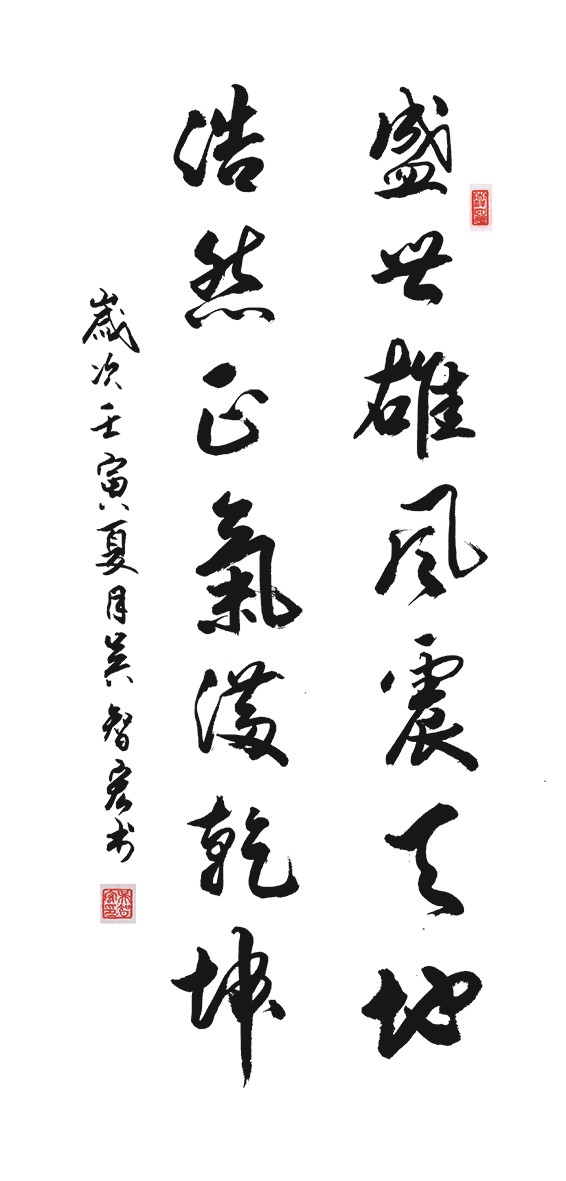 盛世雄風震天地
浩然正氣滿乾坤
歲次壬寅夏月吳智宏书